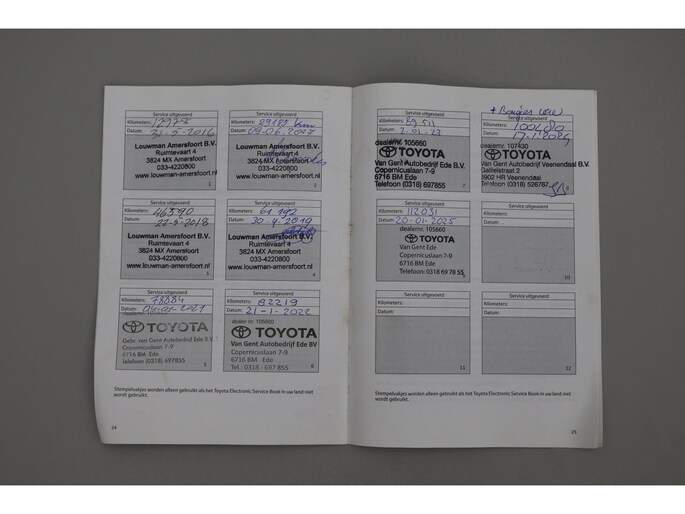 Service uitgevoerd
Kilometers: 12978
Datum: 31-5-2016
Louwman Amersfoort B.V.
Ruimtevaart 4
3824 MX Amersfoort
033-4220800
www.louwman-amersfoort.nl
1
Service uitgevoerd
Kilometers: km
Datum: 09-06-2017
Louwman Amersfoort B.V.
Ruimtevaart 4
3824 MX Amersfoort
033-4220800
www.louwman-amersfoort.nl
2
Service uitgevoerd
Kilometers: 46390
Datum: 22-5-2018
Louwman Amersfoort B.V.
Ruimtevaart 4
3824 MX Amersfoort
033-4220800
www.louwman-amersfoort.nl
3
Service uitgevoerd
Kilometers: 61192
Datum: 30-4-2019
Louwman Amersfoort B.V.
Ruimtevaart 4
3824 MX Amersfoort
033-4220800
www.louwman-amersfoort.nl
4
Service uitgevoerd
Kilometers: 78084
Datum: 04-01-2021
dealernr. 105660
TOYOTA
Gebr. van Gent Autobedrijf Ede B.V.
Copernicuslaan 7-9
6716 BM Ede
Telefoon (0318) 697855
5
Service uitgevoerd
Kilometers: 82219
Datum: 21-1-2022
dealer nr. 105660
TOYOTA
Van Gent Autobedrijf Ede BV
Copernicuslaan 7-9
6716 BM Ede
Tel.: 0318 - 697 855
6
Stempelvakjes worden alleen gebruikt als het Toyota Electronic Service Book in uw land niet
wordt gebruikt.
24
Service uitgevoerd
Kilometers: 89511
Datum: 2-01-23
dealernr. 105660
TOYOTA
Van Gent Autobedrijf Ede B.V.
Copernicuslaan 7-9
6716 BM Ede
Telefoon (0318) 697855
7
Service uitgevoerd
Kilometers: 100480
Datum: 17-1-2024
dealernr. 107430
TOYOTA
Van Gent Autobedrijf Veenendaal B.V.
Galileistraat 2
3902 HR Veenendaal
Telefoon (0318) 526767
Service uitgevoerd
Kilometers: 112031
Datum: 20-01-2025
dealernr. 105660
TOYOTA
Van Gent Ede
Copernicuslaan 7-9
6716 BM Ede
Telefoon: 0318 69 78 55
9
Service uitgevoerd
Kilometers:
Datum:
10
Service uitgevoerd
Kilometers:
Datum:
11
Service uitgevoerd
Kilometers:
Datum:
12
Stempelvakjes worden alleen gebruikt als het Toyota Electronic Service Book in uw land niet
wordt gebruikt.
25